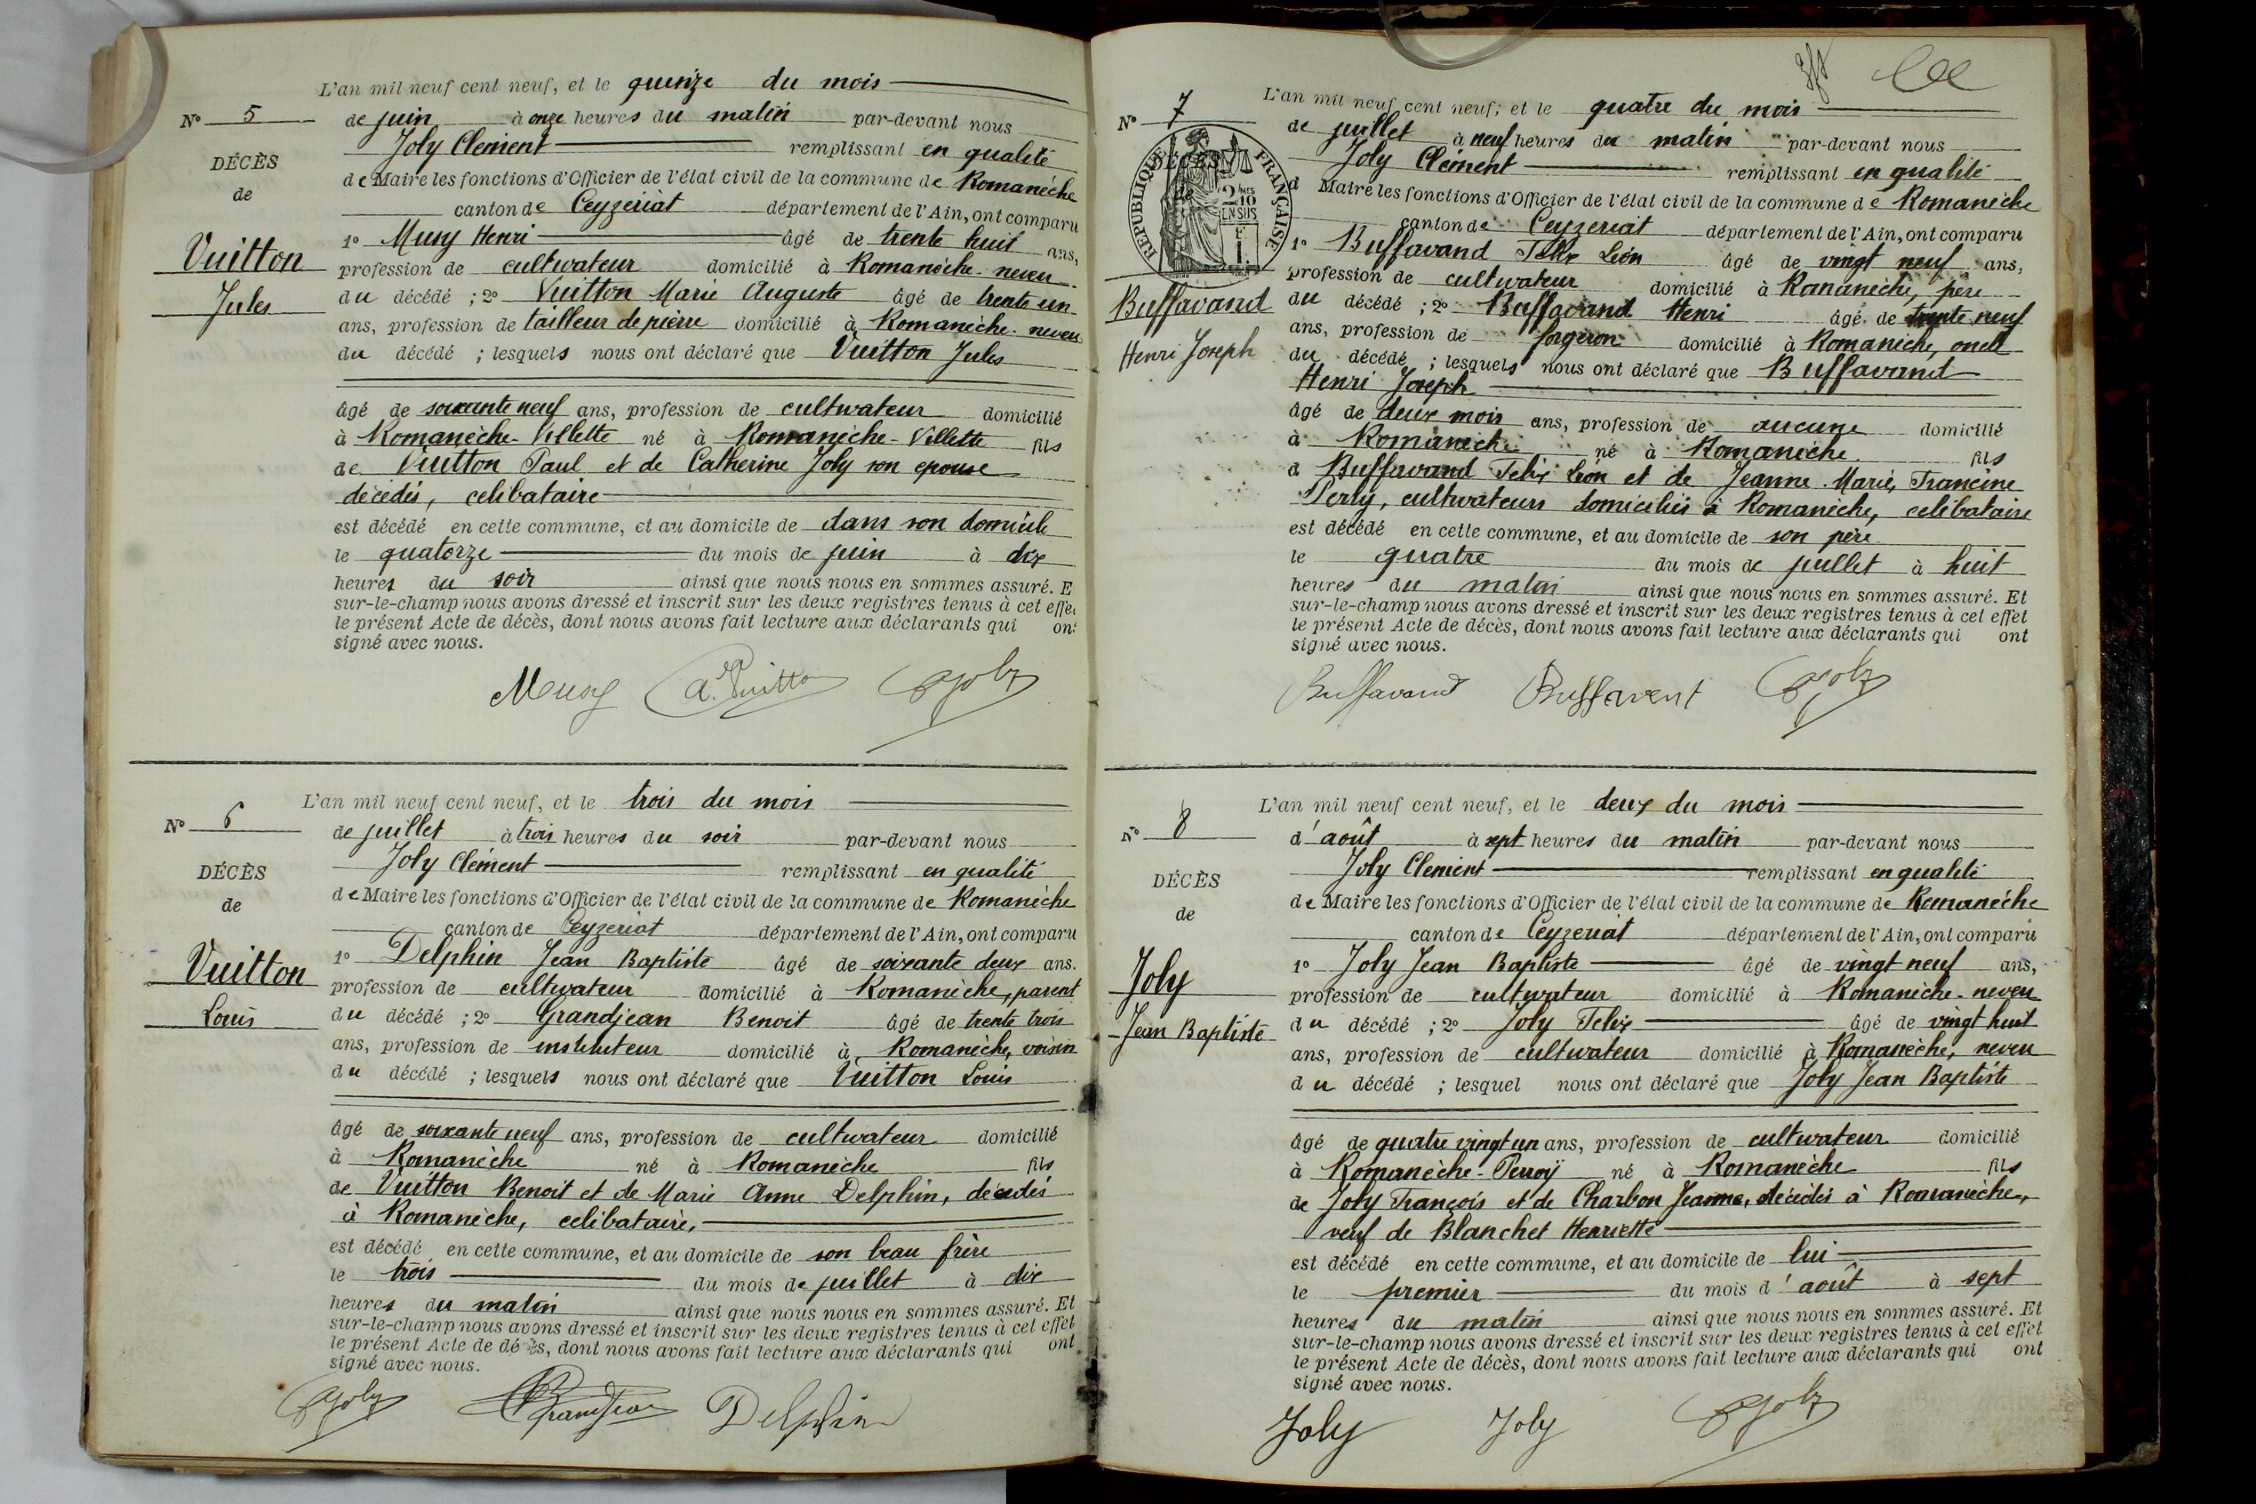 L'an mil neuf cent neuf, et le quinze du mois
N° 5
de juin à onze heures du matin par-devant nous
Joly Clément remplissant en qualité
DÉCÈS
de Maire les fonctions d'Officier de l'état civil de la commune de Romanèche
de
canton de Ceyzériat département de l'Ain, ont comparu
1° Musy Henri âgé de trente huit ans,
Vuitton
profession de cultivateur domicilié à Romanèche - neveu
Jules
du décédé ; 2° Vuitton Marie Auguste âgé de trente un
ans, profession de tailleur de pierre domicilié à Romanèche - neveu
du décédé ; lesquels nous ont déclaré que Vuitton Jules
âgé de soixante neuf ans, profession de cultivateur domicilié
à Romanèche - Villette né à Romanèche - Villette fils
de Vuitton Paul et de Catherine Joly son epouse
décédés, celibataire
est décédé en cette commune, et au domicile de dans son domicile
le quatorze du mois de juin à dix
heures du soir ainsi que nous nous en sommes assuré. E
sur-le-champ nous avons dressé et inscrit sur les deux registres tenus à cet effe
le présent Acte de décès, dont nous avons fait lecture aux déclarants qui on
signé avec nous.
Musy A. Vuitton Joly
L'an mil neuf cent neuf, et le trois du mois
N° 6
de juillet à trois heures du soir par-devant nous
Joly Clément remplissant en qualité
DÉCÈS
de Maire les fonctions d'Officier de l'état civil de la commune de Romanèche
de
canton de Ceyzériat département de l'Ain, ont comparu
1° Delphin Jean Baptiste âgé de soixante deux ans.
Vuitton
profession de cultivateur domicilié à Romanèche, parent
Louis
du décédé ; 2° Grandjean Benoit âgé de trente trois
ans, profession de instituteur domicilié à Romanèche, voisin
du décédé ; lesquels nous ont déclaré que Vuitton Louis
âgé de soixante neuf ans, profession de cultivateur domicilié
à Romanèche né à Romanèche fils
de Vuitton Benoit et de Marie Anne Delphin, décédés
à Romanèche, celibataire,
est décédé en cette commune, et au domicile de son beau frère
le trois du mois de juillet à dix
heures du matin ainsi que nous nous en sommes assuré. Et
sur-le-champ nous avons dressé et inscrit sur les deux registres tenus à cet effet
le présent Acte de décès, dont nous avons fait lecture aux déclarants qui ont
signé avec nous.
Joly Grandjean Delphin
L'an mil neuf cent neuf, et le quatre du mois
N° 7
de juillet à neuf heures du matin par-devant nous
Joly Clément remplissant en qualité
DÉCÈS
RÉPUBLIQUE FRANÇAISE
2 10mes EN SUS
1 F.
d Maire les fonctions d'Officier de l'état civil de la commune de Romanèche
canton de Ceyzeriat département de l'Ain, ont comparu
1° Buffavand Felix Léon âgé de vingt neuf ans,
profession de cultivateur domicilié à Romanèche, père
Buffavand
du décédé ; 2° Buffavand Henri âgé de trente neuf
Henri Joseph
ans, profession de forgeron domicilié à Romanèche, oncle
du décédé ; lesquels nous ont déclaré que Buffavand
Henri Joseph
âgé de deux mois ans, profession de aucune domicilié
à Romanèche né à Romanèche fils
d Buffavand Felix Léon et de Jeanne Marie, Francine
Perly, cultivateurs domiciliés à Romanèche, celibataire
est décédé en cette commune, et au domicile de son père
le quatre du mois de juillet à huit
heures du matin ainsi que nous nous en sommes assuré. Et
sur-le-champ nous avons dressé et inscrit sur les deux registres tenus à cet effet
le présent Acte de décès, dont nous avons fait lecture aux déclarants qui ont
signé avec nous.
Buffavand Buffavent Joly
L'an mil neuf cent neuf, et le deux du mois
N° 8
d'août à sept heures du matin par-devant nous
Joly Clément remplissant en qualité
DÉCÈS
de Maire les fonctions d'Officier de l'état civil de la commune de Romanèche
de
canton de Ceyzeriat département de l'Ain, ont comparu
1° Joly Jean Baptiste âgé de vingt neuf ans,
Joly
profession de cultivateur domicilié à Romanèche - neveu
Jean Baptiste
du décédé ; 2° Joly Felix âgé de vingt huit
ans, profession de cultivateur domicilié à Romanèche, neveu
du décédé ; lesquel nous ont déclaré que Joly Jean Baptiste
âgé de quatre vingt un ans, profession de cultivateur domicilié
à Romanèche - né à Romanèche fils
de Joly François et de Charbon Jeanne, décédés à Romanèche,
veuf de Blanchet Henriette
est décédé en cette commune, et au domicile de lui
le premier du mois d'août à sept
heures du matin ainsi que nous nous en sommes assuré. Et
sur-le-champ nous avons dressé et inscrit sur les deux registres tenus à cet effet
le présent Acte de décès, dont nous avons fait lecture aux déclarants qui ont
signé avec nous.
Joly Joly Joly